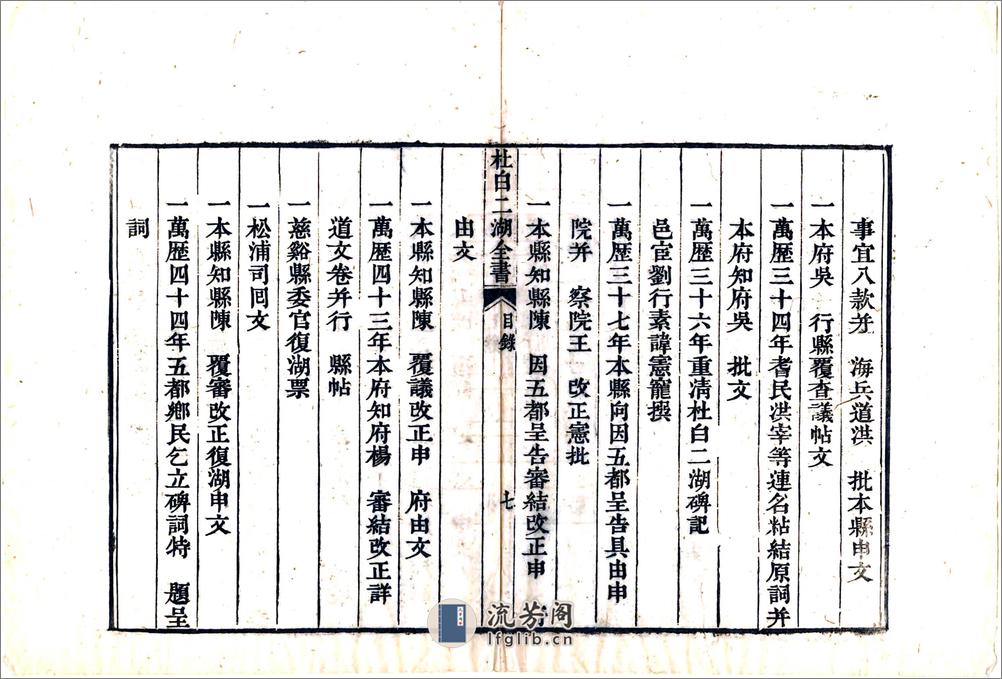 事宜八款并　海兵道洪　批本縣申文
一本府吳　行縣覆查議帖文
一萬歷三十四年耆民洪宰等連名粘結原詞并
本府知府吳　批文
一萬歷三十六年重清杜白二湖碑記
邑宦劉行素諱憲寵撰
一萬歷三十七年本縣向因五都呈告具由申
院并　察院王　改正憲批
一本縣知縣陳　因五都呈告審結改正申
杜白二湖全書　目錄　七
由文
一本縣知縣陳　覆議改正申　府由文
一萬歷四十三年本府知府楊　審結改正詳
道文卷并行　縣帖
一慈谿縣委官復湖票
一松浦司囘文
一本縣知縣陳　覆審改正復湖申文
一萬歷四十四年五都鄉民乞立碑詞特　題呈
詞
流芳阁
lfglib.cn